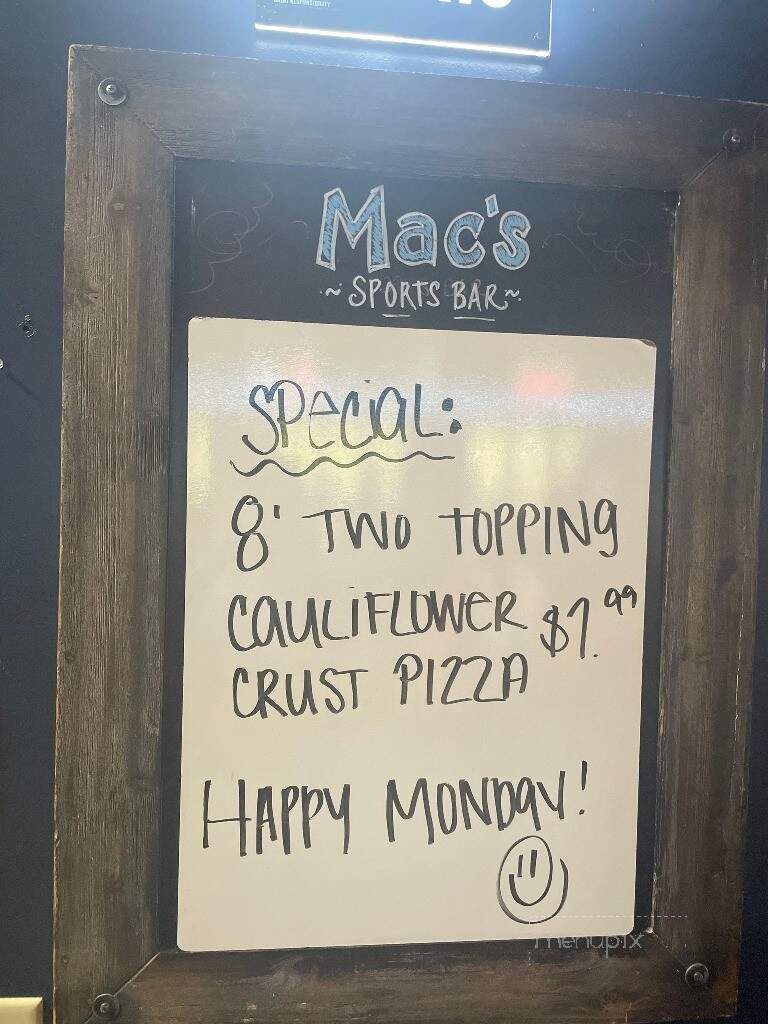 Mac's
~ SPORTS BAR ~
SPECIAL:
8' TWO TOPPING
CAULIFLOWER $7.99
CRUST PIZZA
HAPPY MONDAY!
menupix